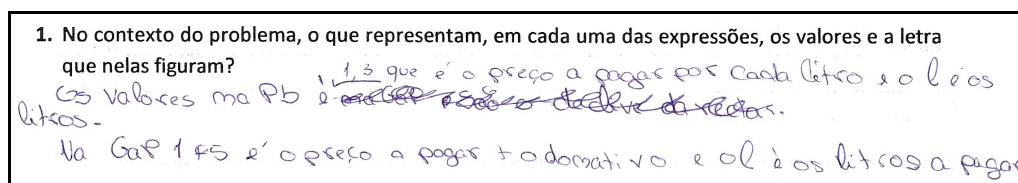 1. No contexto do problema, o que representam, em cada uma das expressões, os valores e a letra
que nelas figuram?
Os valores na Pb é 1,3 que é o preço a pagar por cada litro e o l é os
litros.
Na Gap 1 é o preço a pagar + o donativo e o l é os litros a pagar